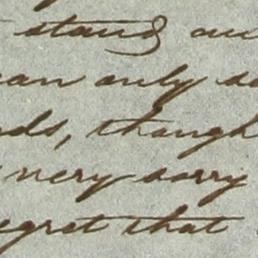 stand
can only
though
very sorry
regret that